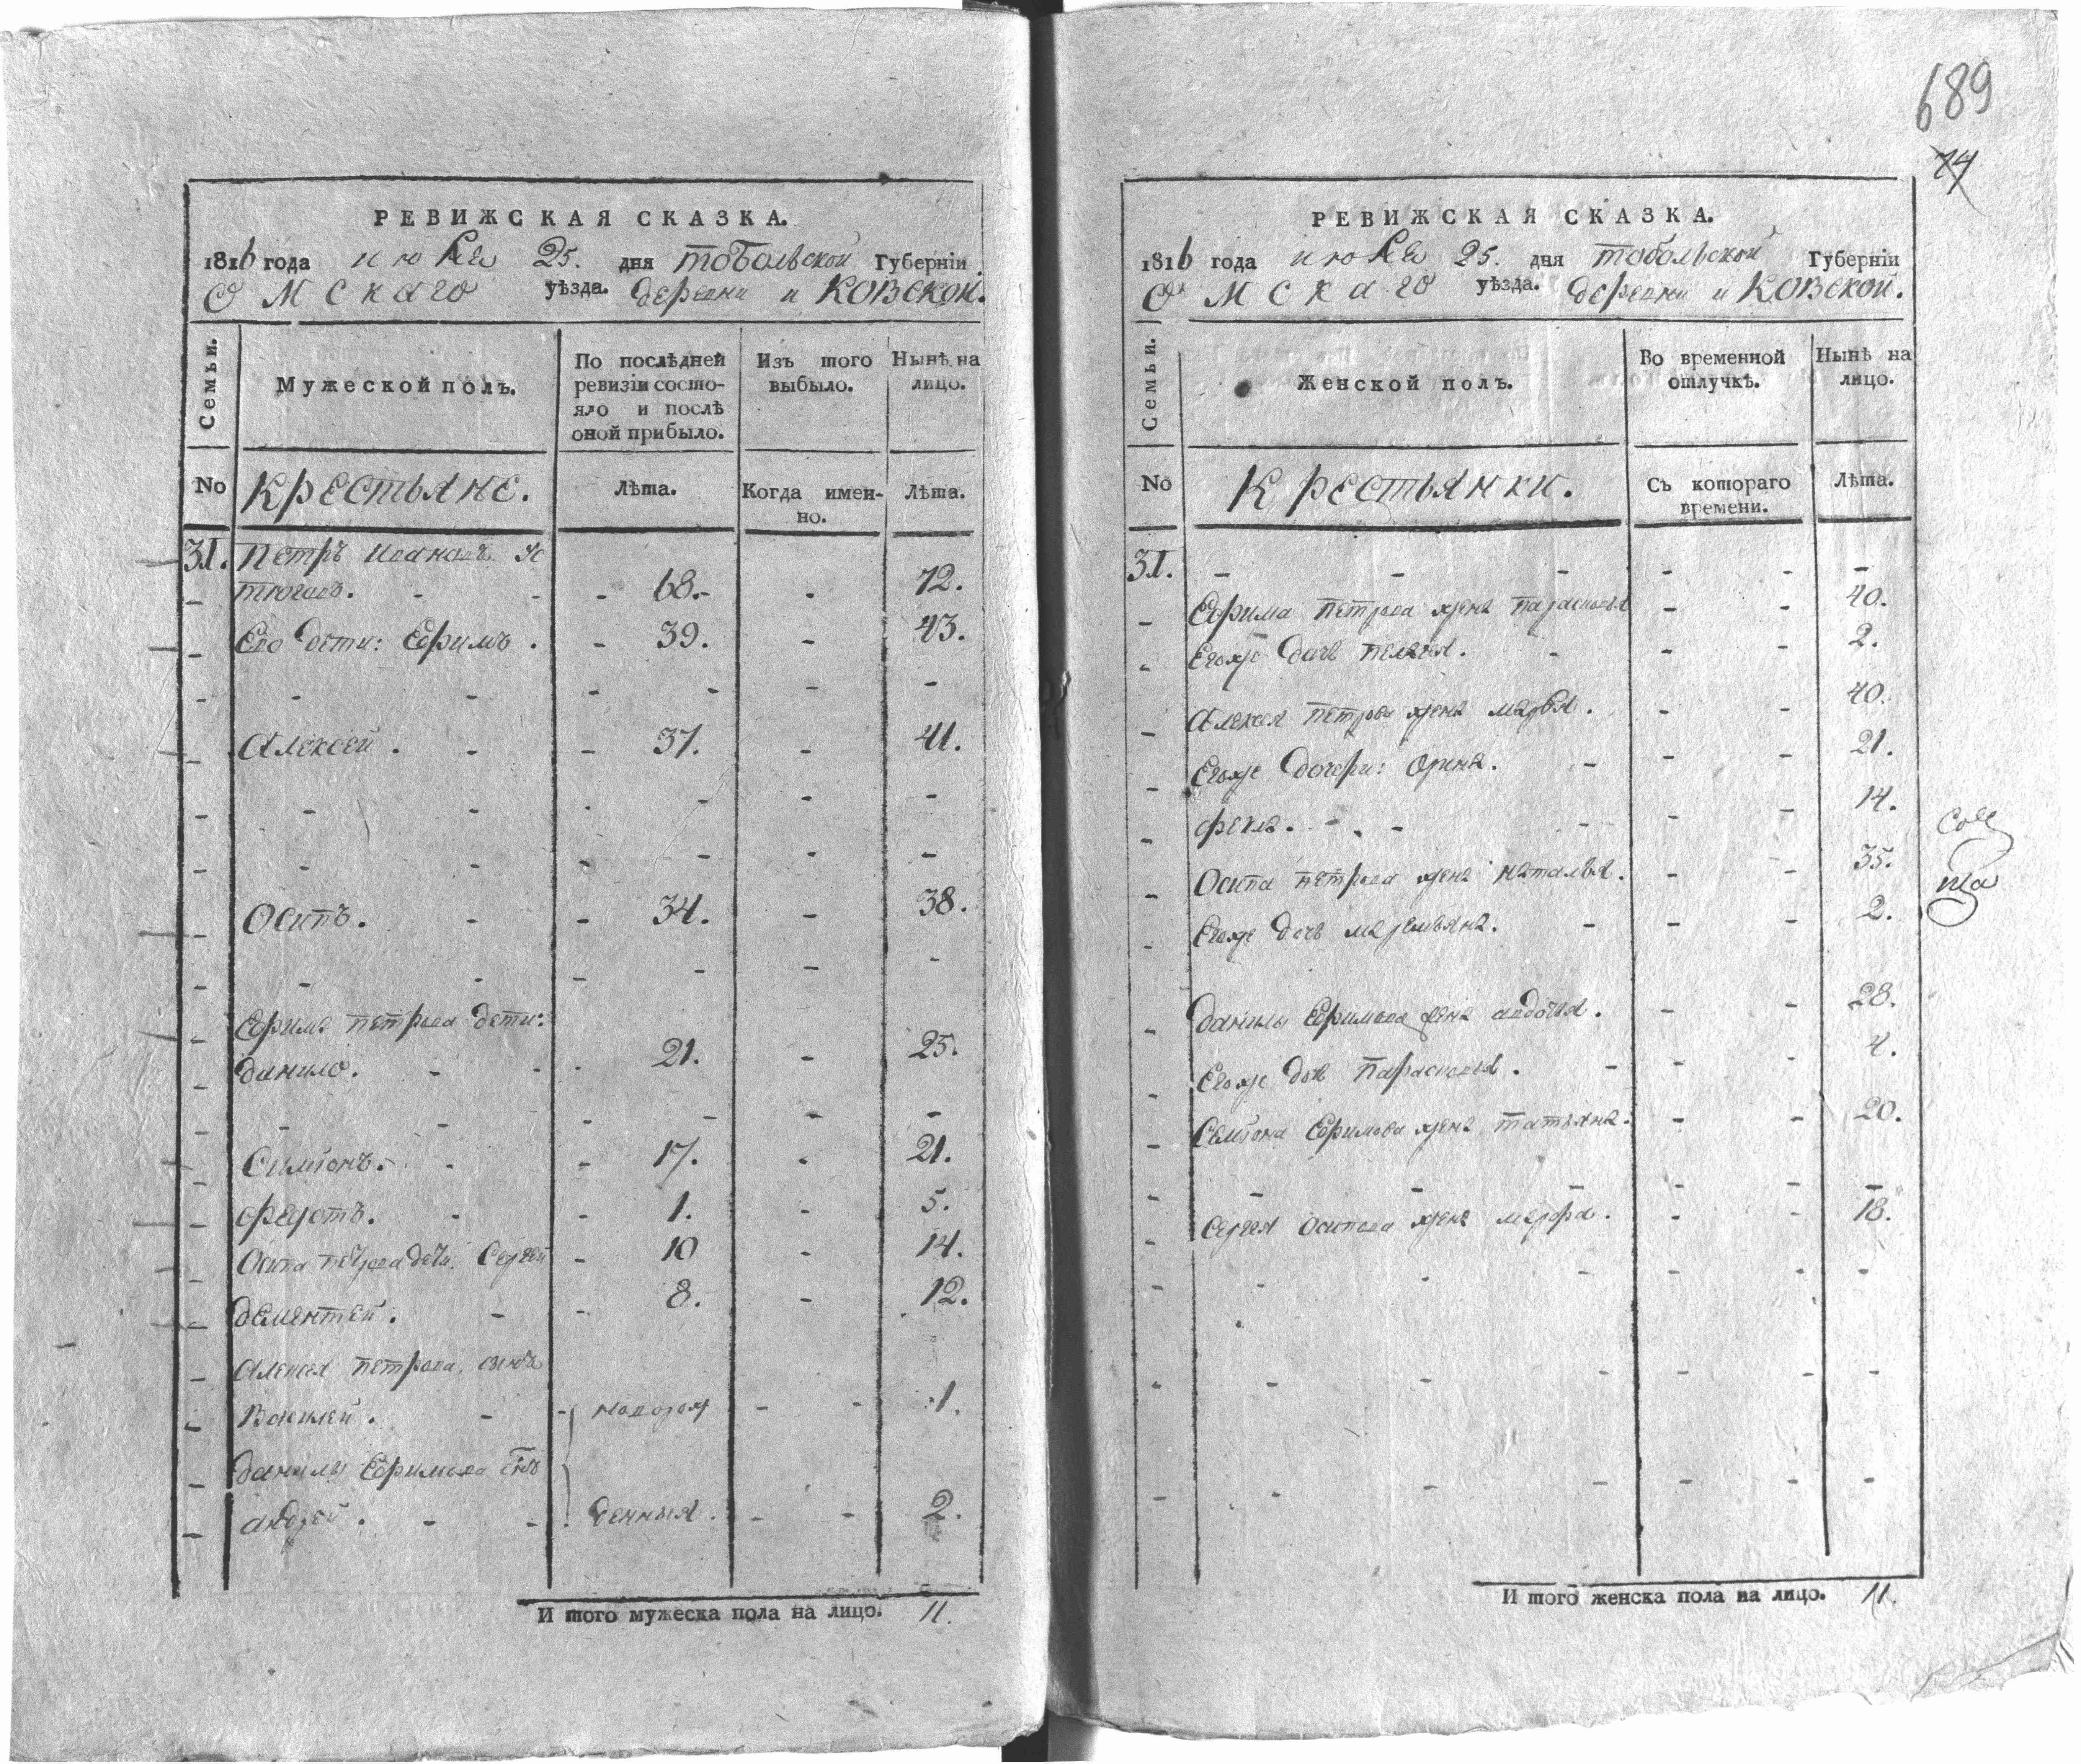 РЕВИЖСКАЯ СКАЗКА.
1816 года июля 25. дня тобольской Губерніи
Омскаго уѣзда. деревни иковской.
Семьи.
Мужеской полъ.
По послѣдней ревизіи состояло и послѣ оной прибыло.
Изъ того выбыло.
Нынѣ на лицо.
No Крестьяне. Лѣта. Когда именно. Лѣта.
31. Петръ Ивановъ Ус
тюговъ. - - - 68.- - 72.
Его дети: Ефимъ. - 39. - 43.
Алексей. - - 37. - 41.
Осипъ. - - 34. - 38.
Ефима петрова дети:
данило. - - - 21. - 25.
Симионъ. - - 17. - 21.
федотъ. - - 1. - 5.
Осипа петрова дети. Сергей - 10 - 14.
дементей. - - 8. - 12.
Алексея петрова. сынъ
Василей. - - новорож - - 1.
данилы Ефимова сынъ
андрей. - - денныя. - - 2.
И того мужеска пола на лицо. 11.
689
74
РЕВИЖСКАЯ СКАЗКА.
1816 года июля 25. дня тобольской Губерніи
Омскаго уѣзда. деревни иковской.
Семьи.
Женской полъ.
Во временной отлучкѣ.
Нынѣ на лицо.
No Крестьянки. Съ котораго времени. Лѣта.
31. - - - - - -
Ефима петрова жена парасковья - - 40.
Егоже дочь пелагея. - - - 2.
Алексея петрова жена марья. - - 40.
Егоже дочери: орина. - - - 21.
фекла. - - - - - 14.
Осипа петрова жена наталья. - - 35.
Егоже дочь маремьяна. - - - 2.
данилы Ефимова жена авдотья. - - 28.
Егоже дочь парасковья. - - - 4.
Семиона Ефимова жена татьяна. - - 20.
Сергея осипова жена марфа. - - 18.
И того женска пола на лицо. 11.